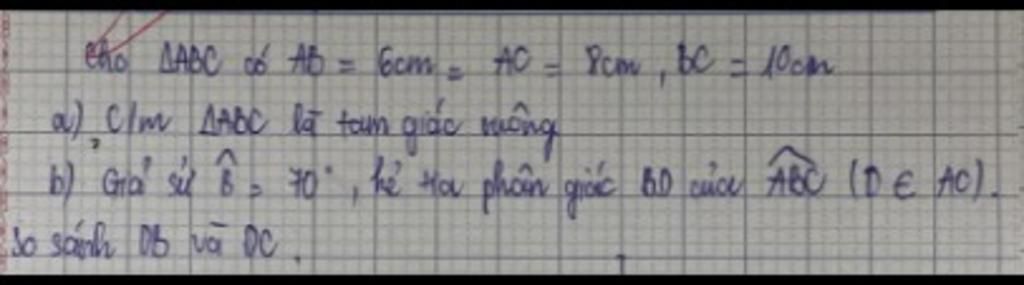 Cho ΔABC có AB = 6cm = AC = 8cm, BC = 10cm
a) C/m ΔABC là tam giác vuông
b) Giả sử B̂ = 70°, kẻ tia phân giác BD của ABC (D ∈ AC).
So sánh DB và DC.